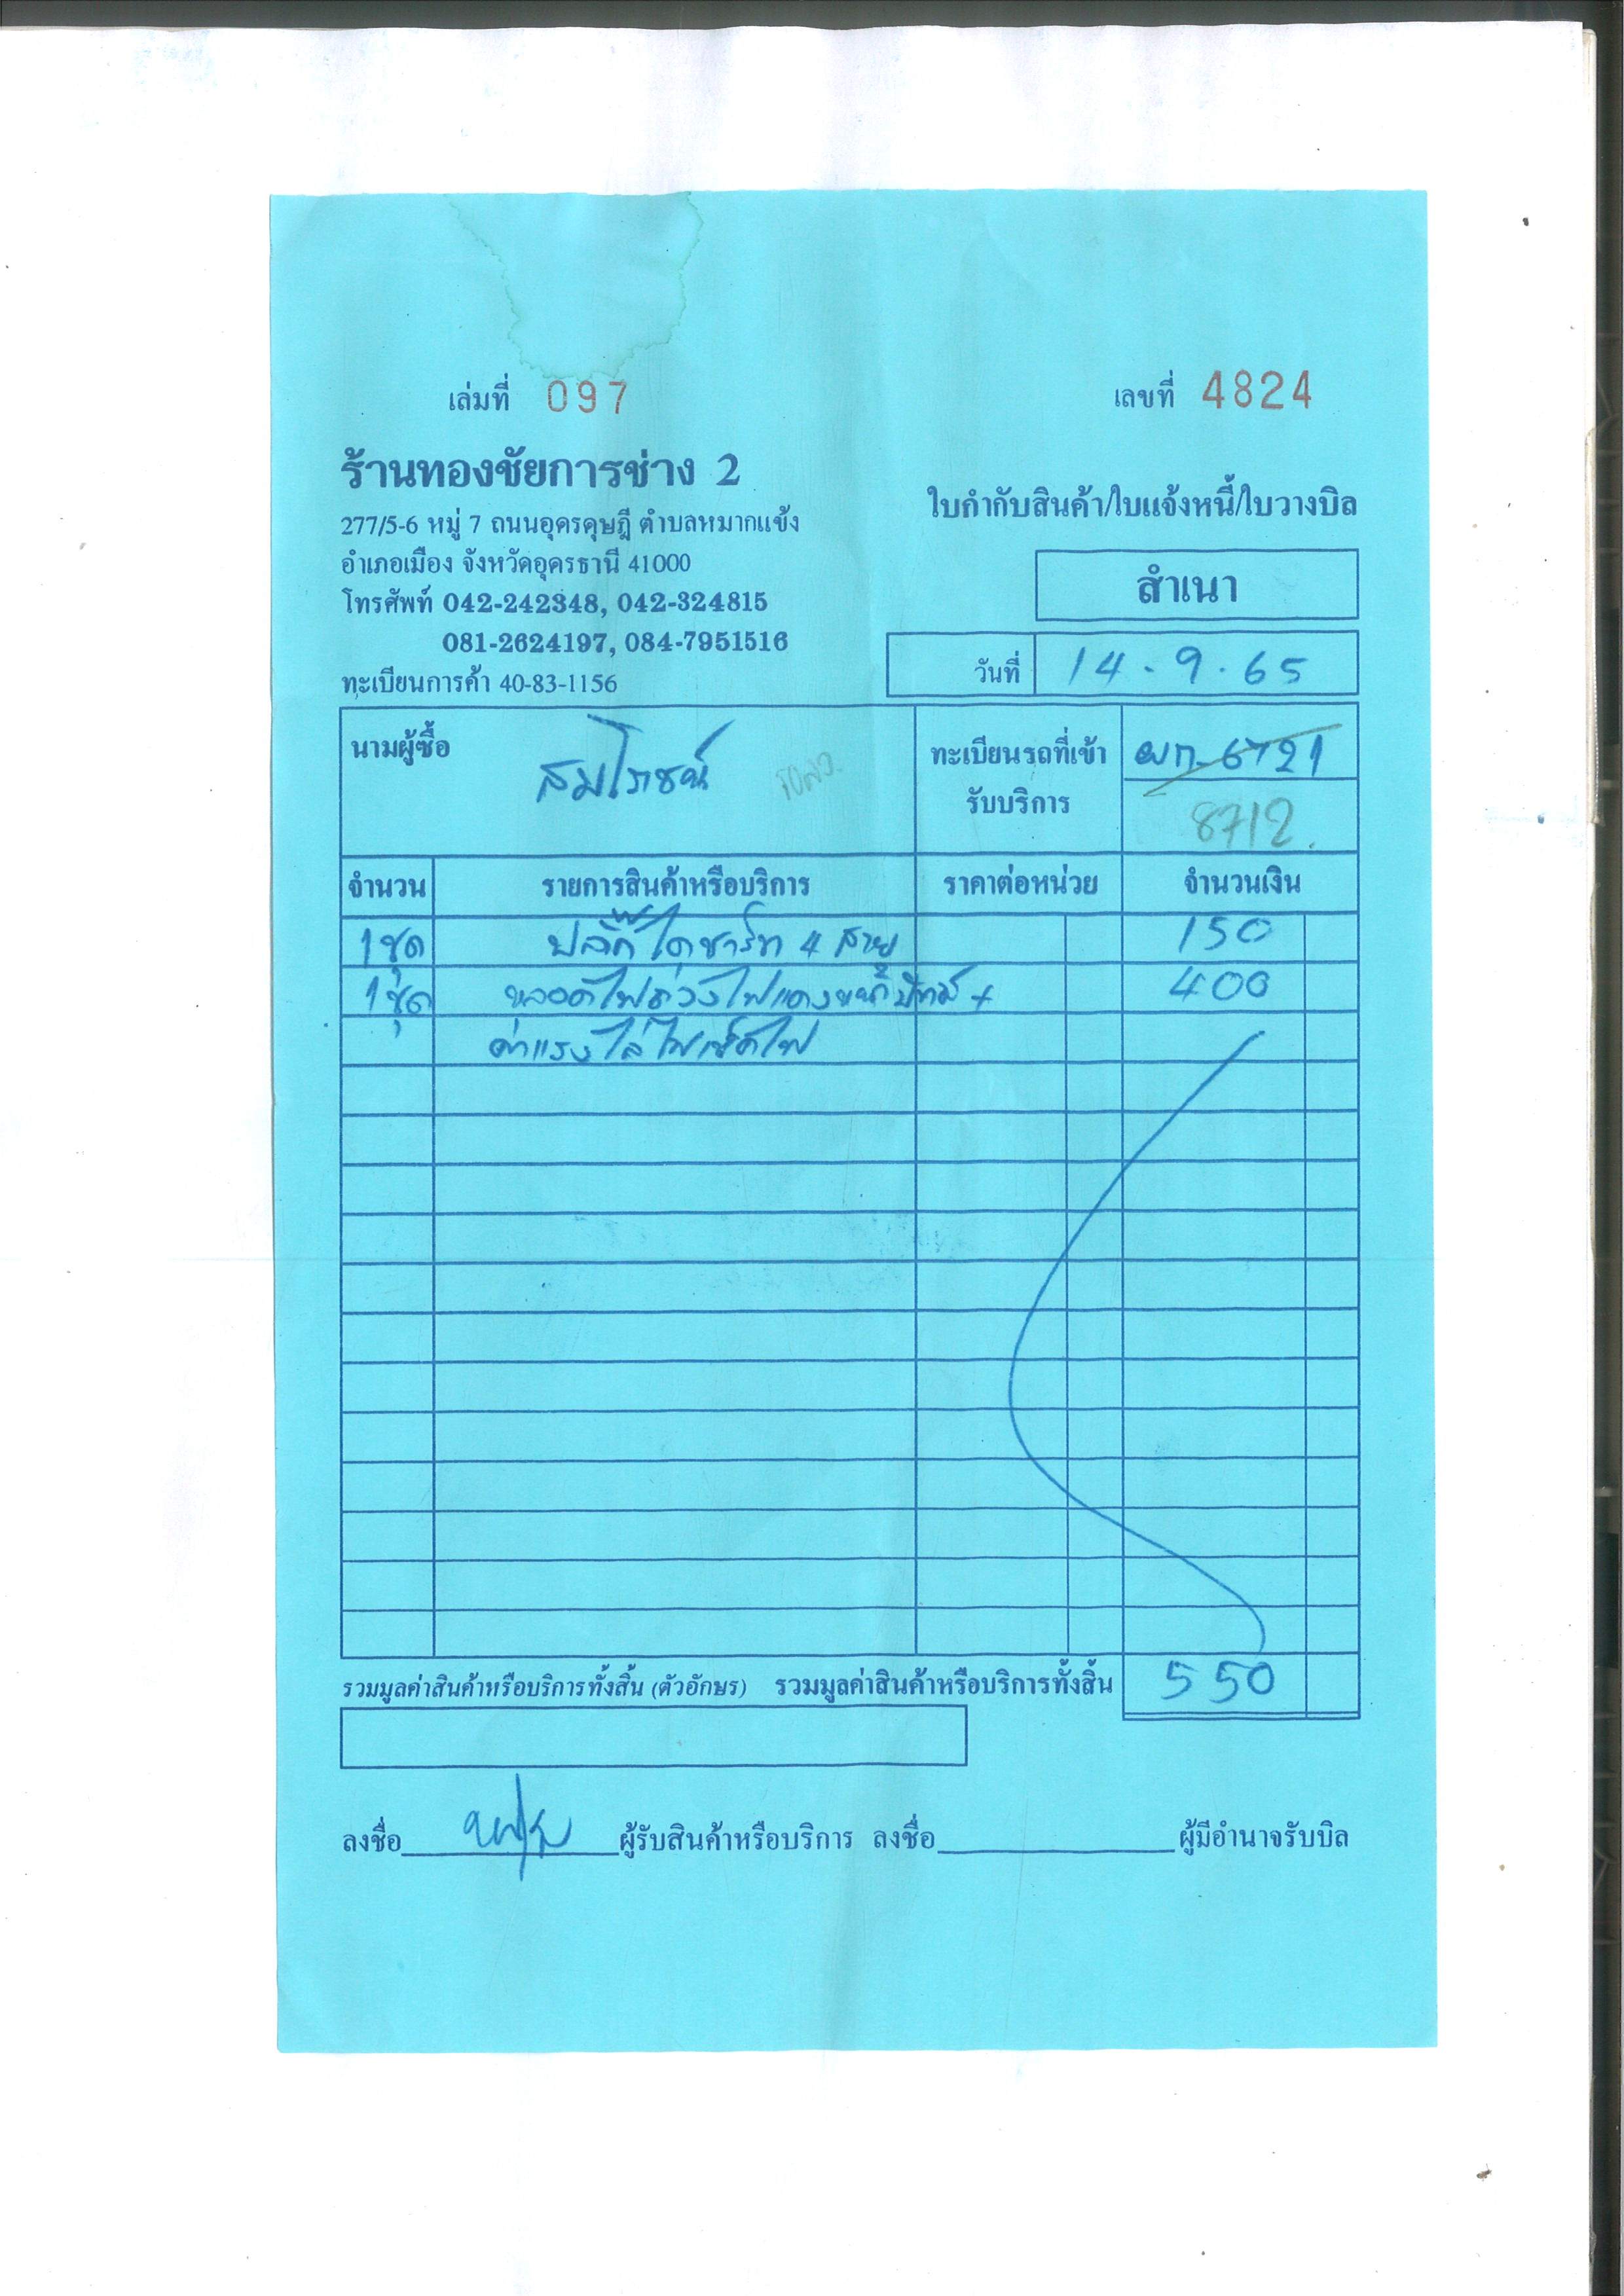 เล่มที่ 097 เลขที่ 4824
ร้านทองชัยการช่าง 2
ใบกำกับสินค้า/ใบแจ้งหนี้/ใบวางบิล
277/5-6 หมู่ 7 ถนนอุดรดุษฎี ตำบลหมากแข้ง
อำเภอเมือง จังหวัดอุดรธานี 41000
สำเนา
โทรศัพท์ 042-242348, 042-324815
081-2624197, 084-7951516
วันที่ 14-9-65
ทะเบียนการค้า 40-83-1156
นามผู้ซื้อ สมโภชน์
ทะเบียนรถที่เข้า 6721
รับบริการ 8712
จำนวน รายการสินค้าหรือบริการ ราคาต่อหน่วย จำนวนเงิน
1ชุด ปลั๊ก ไดชาร์ท 4 สาย 150
1ชุด หลอดไฟ 400
ค่าแรงไล่ไฟเช็คไฟ
รวมมูลค่าสินค้าหรือบริการทั้งสิ้น (ตัวอักษร) รวมมูลค่าสินค้าหรือบริการทั้งสิ้น 550
ลงชื่อ ผู้รับสินค้าหรือบริการ ลงชื่อ ผู้มีอำนาจรับบิล